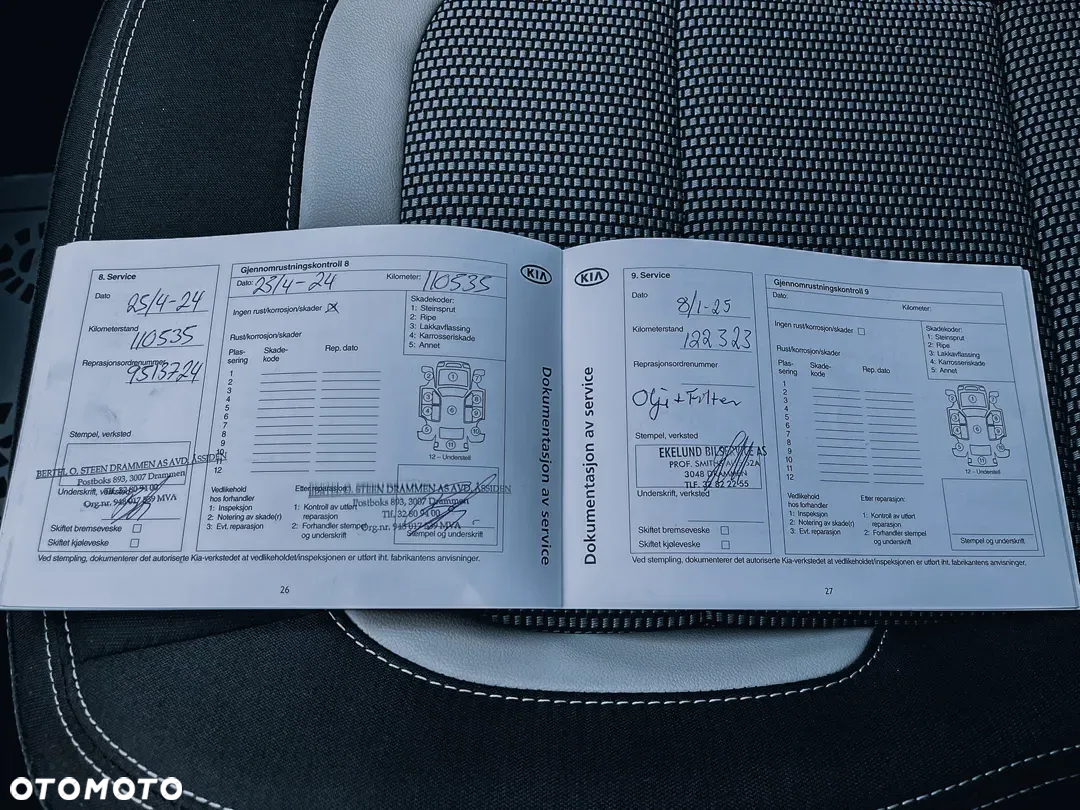 8. Service
Dato
25/4-24
Kilometerstand
110535
Reprasjonsordrenummer
9513724
Stempel, verksted
BERTEL O. STEEN DRAMMEN AS AVD. ÅSSIDEN
Postboks 893, 3007 Drammen
Tlf. 32 80 94 00
Org.nr. 945 017 589 MVA
Underskrift, verksted
Skiftet bremseveske
Skiftet kjøleveske
Gjennomrustningskontroll 8
Dato: 23/4-24
Kilometer: 110535
Ingen rust/korrosjon/skader
Rust/korrosjon/skader
Plas-
sering
Skade-
kode
Rep. dato
1
2
3
4
5
6
7
8
9
10
11
12
Skadekoder:
1: Steinsprut
2: Ripe
3: Lakkavflassing
4: Karrosseriskade
5: Annet
12 – Understell
Vedlikehold
hos forhandler
1: Inspeksjon
2: Notering av skade(r)
3: Evt. reparasjon
Etter reparasjon:
1: Kontroll av utført
reparasjon
2: Forhandler stempel
og underskrift
O. STEEN DRAMMEN AS AVD. ÅSSIDEN
Postboks 893, 3007 Drammen
Tlf. 32 80 94 00
Org.nr. 945 017 589 MVA
Stempel og underskrift
Ved stempling, dokumenterer det autoriserte Kia-verkstedet at vedlikeholdet/inspeksjonen er utført iht. fabrikantens anvisninger.
26
KIA
Dokumentasjon av service
KIA
Dokumentasjon av service
9. Service
Dato
8/1-25
Kilometerstand
122323
Reprasjonsordrenummer
Olje + Filter
Stempel, verksted
EKELUND BILSERVICE AS
PROF. SMITHS
3048 DRAMMEN
TLF. 32 82 22 55
Underskrift, verksted
Skiftet bremseveske
Skiftet kjøleveske
Gjennomrustningskontroll 9
Dato:
Kilometer:
Ingen rust/korrosjon/skader
Rust/korrosjon/skader
Plas-
sering
Skade-
kode
Rep. dato
1
2
3
4
5
6
7
8
9
10
11
12
Skadekoder:
1: Steinsprut
2: Ripe
3: Lakkavflassing
4: Karrosseriskade
5: Annet
12 – Understell
Vedlikehold
hos forhandler
1: Inspeksjon
2: Notering av skade(r)
3: Evt. reparasjon
Etter reparasjon:
1: Kontroll av utført
reparasjon
2: Forhandler stempel
og underskrift
Stempel og underskrift
Ved stempling, dokumenterer det autoriserte Kia-verkstedet at vedlikeholdet/inspeksjonen er utført iht. fabrikantens anvisninger.
27
OTOMOTO